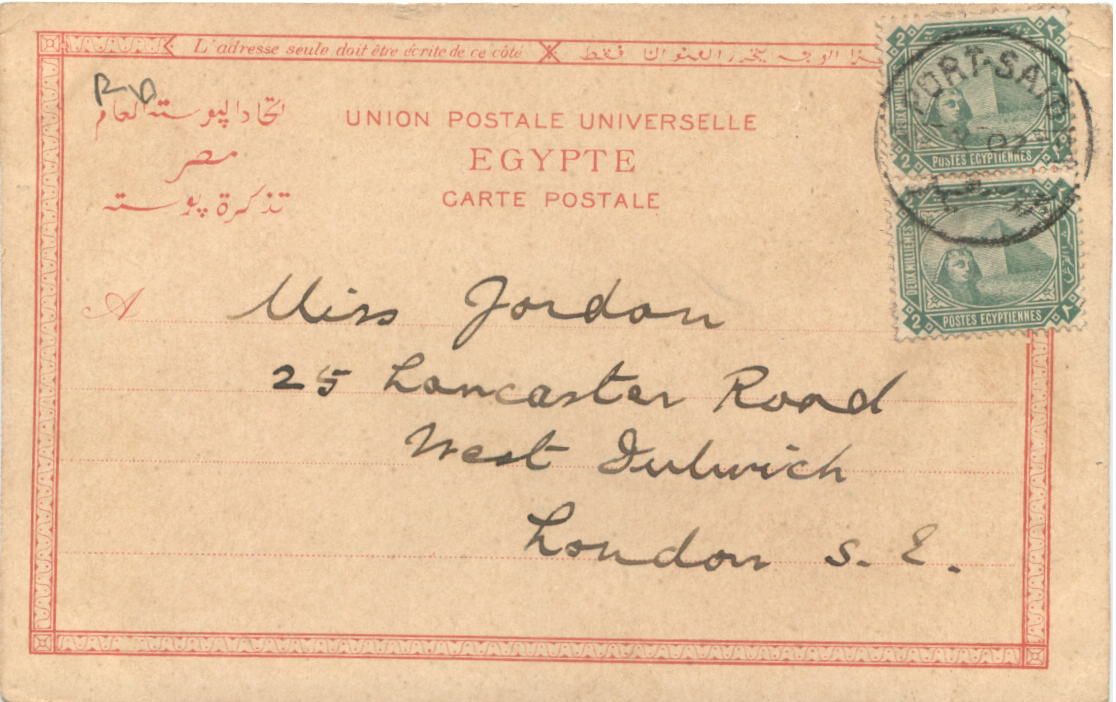 L'adresse seule doit être écrite de ce côté
اتحاد البوسته العام
مصر
تذكرة بوسته
UNION POSTALE UNIVERSELLE
EGYPTE
CARTE POSTALE
PORT-SAID
02
2 2
DEUX MILLIEMES
POSTES EGYPTIENNES
2 ٢
DEUX MILLIEMES
POSTES EGYPTIENNES
2 ٢
A Miss Jordan
25 Lancaster Road
West Dulwich
London S. E.